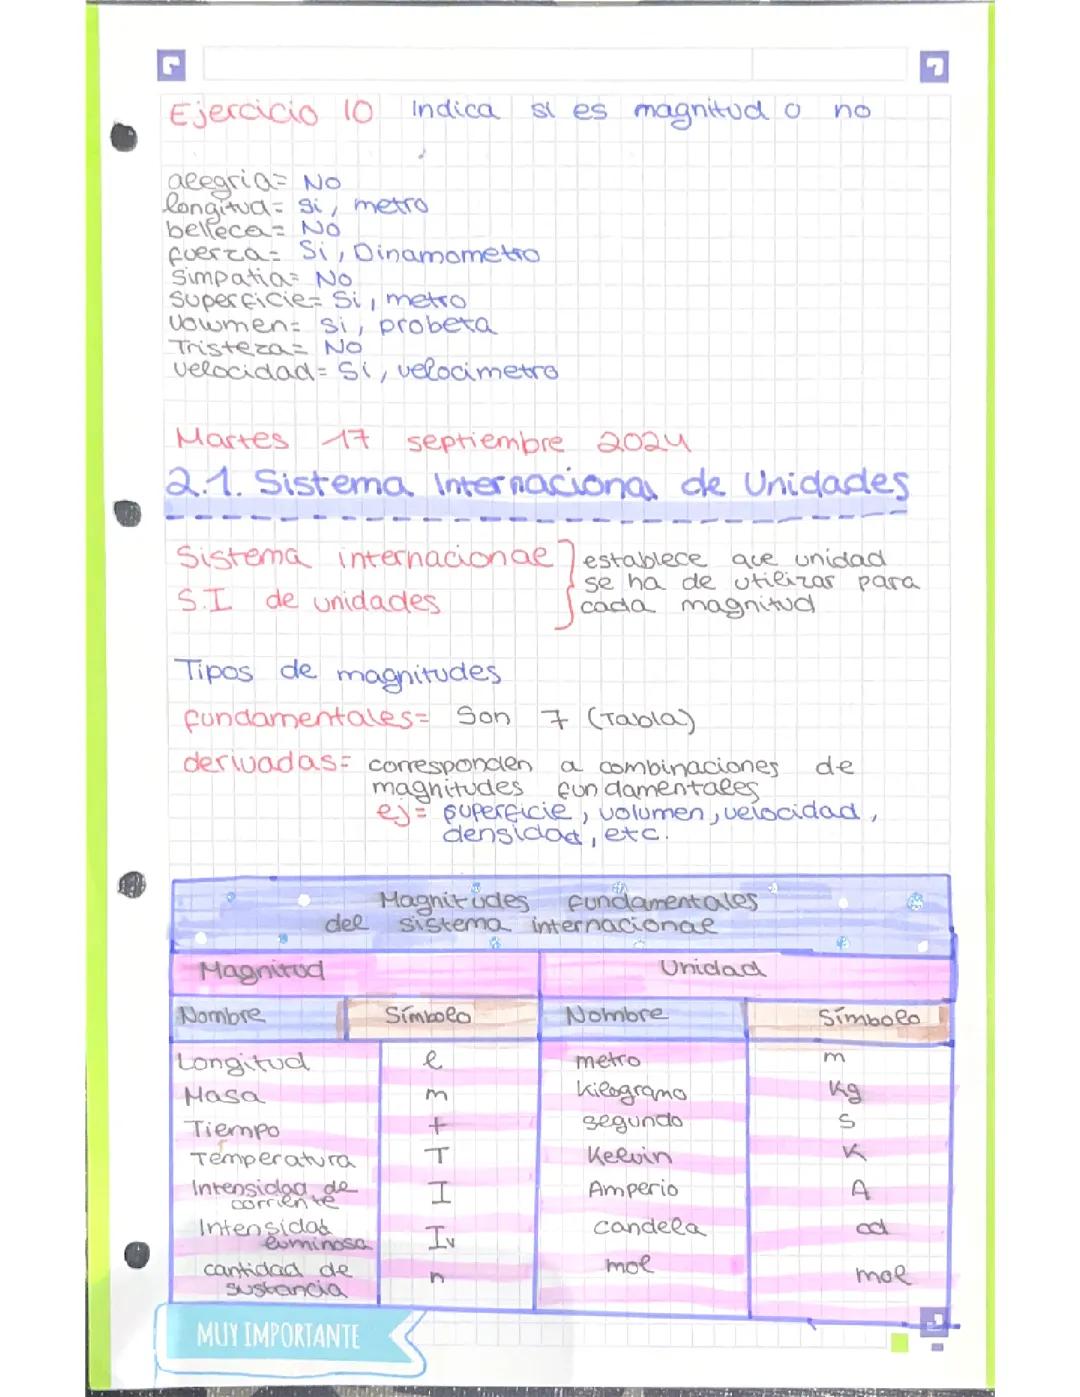 Ejercicio 10 Indica si es magnitud o no
alegria= No
longitud= Si, metro
belleca= No
fuerza= Si, Dinamometro
Simpatia= No
Superficie= Si, metro
volumen= Si, probeta
Tristeza= No
velocidad= Si, velocimetro
Martes 17 septiembre 2024
2.1. Sistema Internacional de Unidades
Sistema internacional
S.I de unidades
establece que unidad
se ha de utilizar para
cada magnitud
Tipos de magnitudes
fundamentales= Son 7 (Tabla)
derivadas= corresponden a combinaciones de
magnitudes fundamentales
ej= superficie, volumen, velocidad,
densidad, etc.
Magnitudes fundamentales
del sistema internacional
Magnitud Unidad
Nombre Símbolo Nombre Símbolo
Longitud l metro m
Masa m Kilogramo Kg
Tiempo t segundo s
Temperatura T Kelvin K
Intensidad de
corriente I Amperio A
Intensidad
luminosa Iv candela cd
cantidad de
sustancia n mol mol
MUY IMPORTANTE